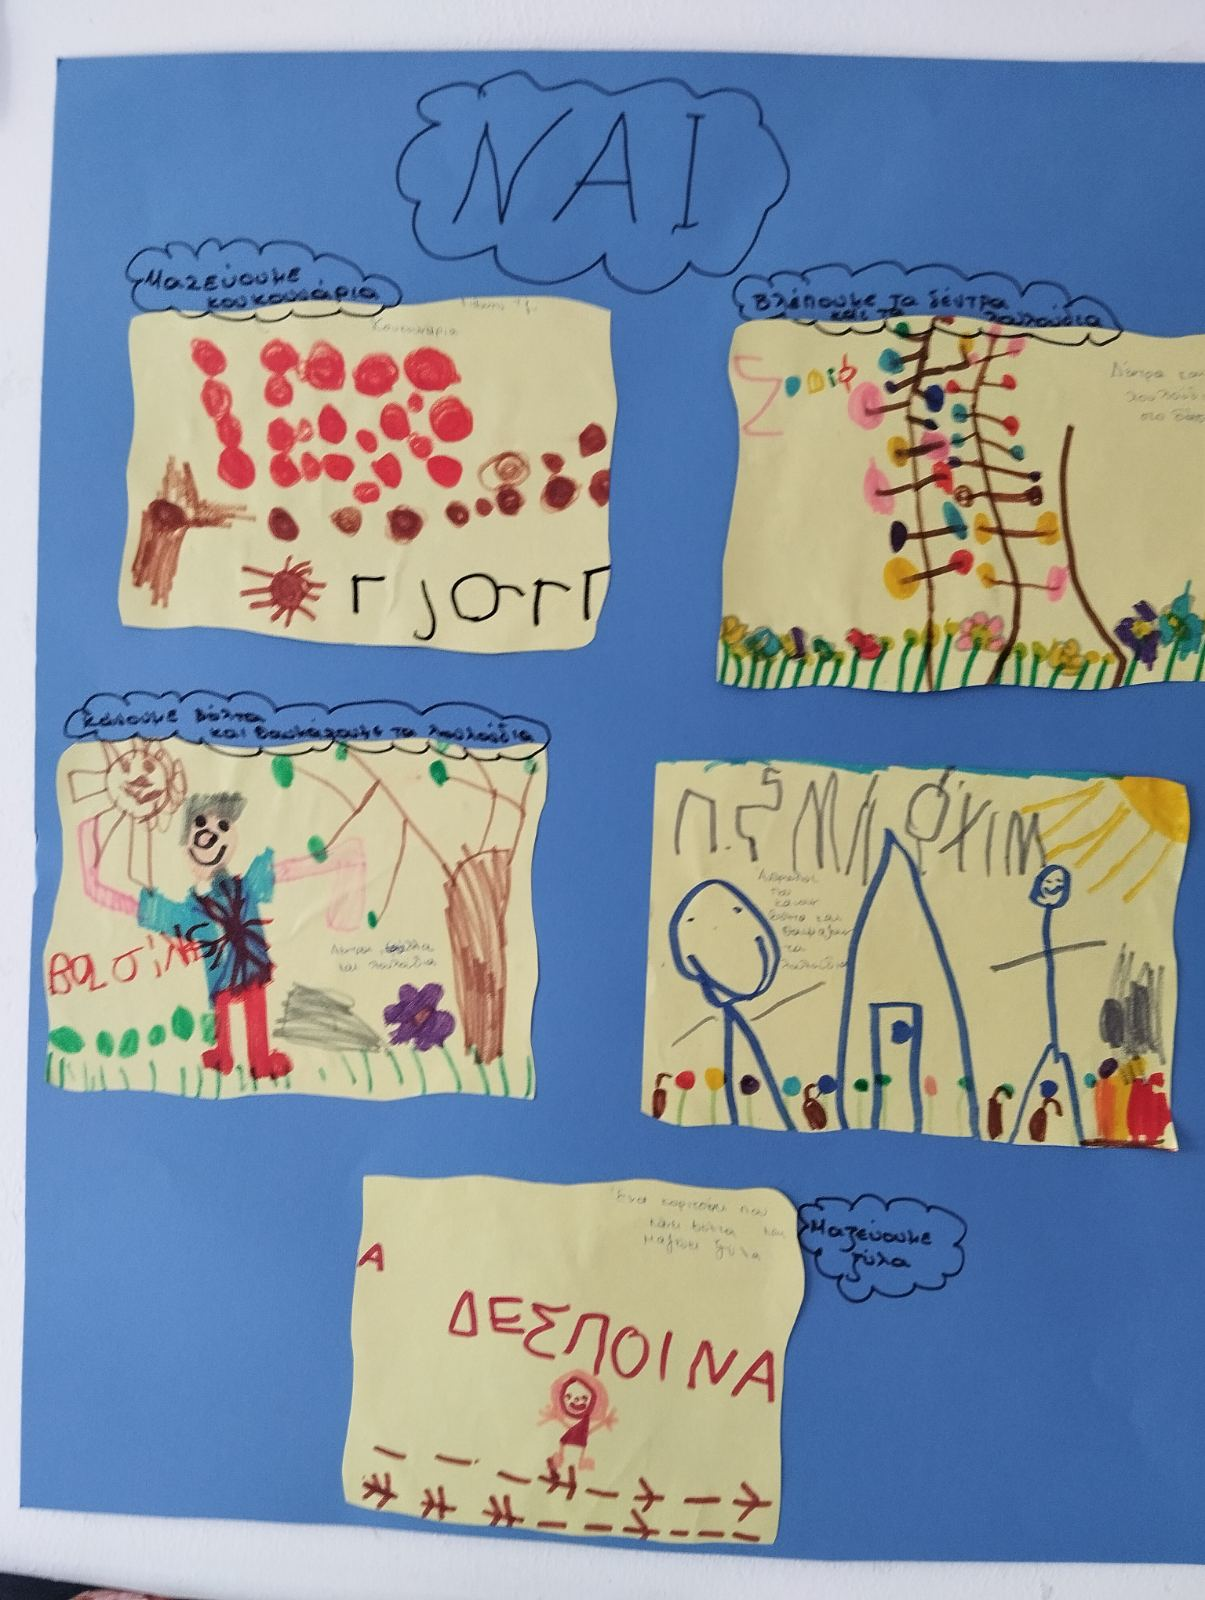 ΝΑΙ
Μαζεύουμε
κουκουνάρια
Κουκουνάρια
Βλέπουμε τα δέντρα
και τα λουλούδια
Δέντρα και
λουλούδια
στο δάσος
κάνουμε βόλτα
και θαυμάζουμε τα λουλούδια
ΒασίΛης
Δέντρα, φύλλα
και λουλούδια
Άνθρωποι
που
κάνουν
βόλτα και
θαυμάζουν
τα
λουλούδια
Ένα κοριτσάκι που
κάνει βόλτα και
μαζεύει ξύλα
Μαζεύουμε
ξύλα
Α
ΔΕΣΠΟΙΝΑ